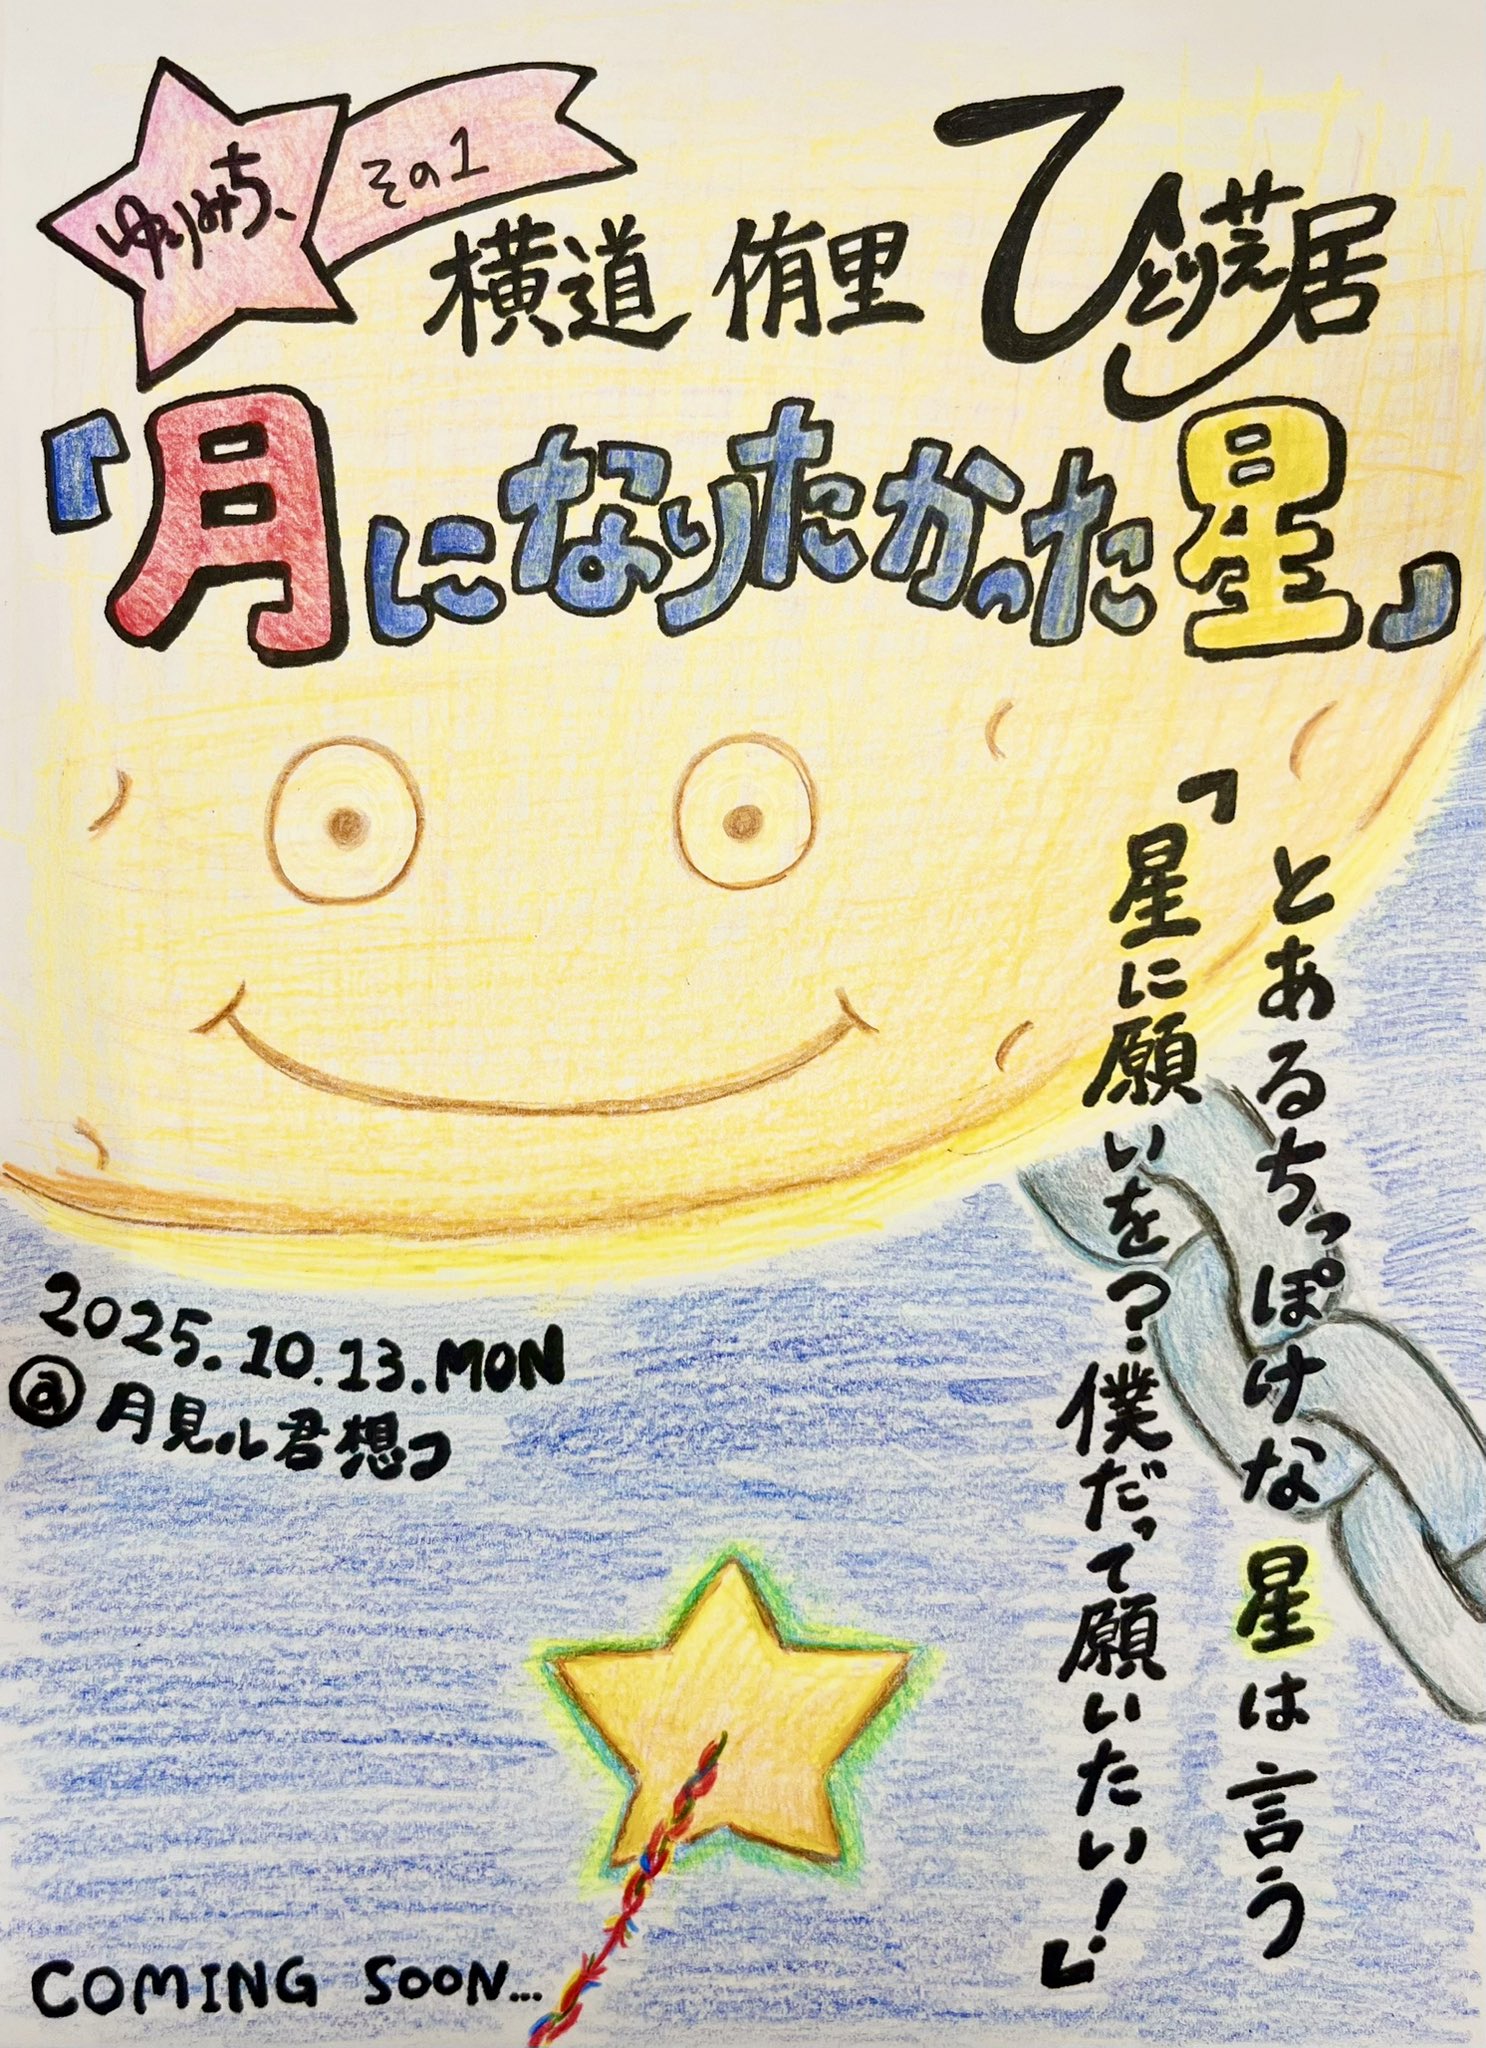 ゆうりみち、
その1
横道 侑里 ひとり芝居
「月になりたかった星」
とあるちっぽけな星は言う
「星に願いを?僕だって願いたい!」
2025.10.13.MON
@月見ル君想フ
COMING SOON...